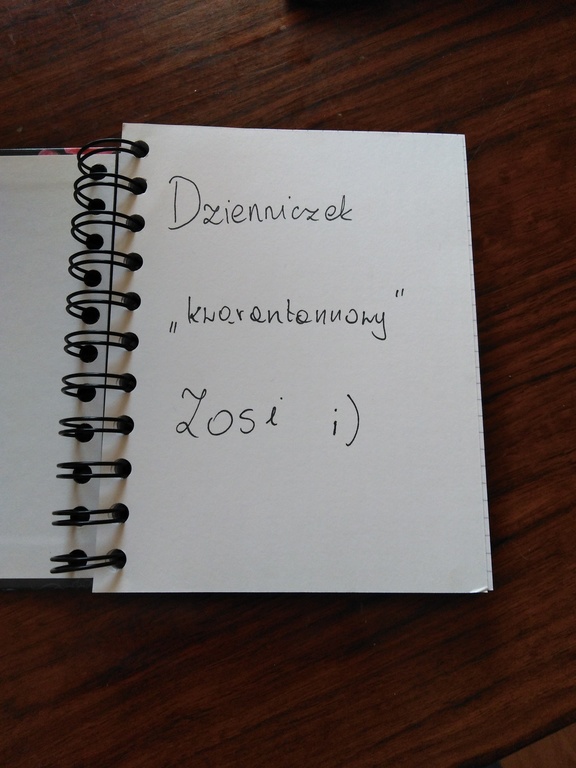 Dzienniczek
„kwarantannowy”
Zosi ;)